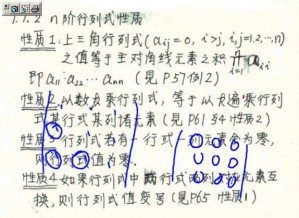 1.1.2 n 阶行列式性质
性质1.上三角行列式(aij=0, i>j, i,j=1,2,…,n)
之值等于主对角线元素之积 aii
即 a11 a22 … ann (见 P57例2)
性质2.以数 乘行列式,等于以 遍乘行列
式某行或某列诸元素(见 P61 §4性质2)
性质3.行列式若有一行或一列元素全为零,
则行列式值为零.
性质4.如果行列式中两行或两列对应元素互
换,则行列式值变号(见P65 性质1)